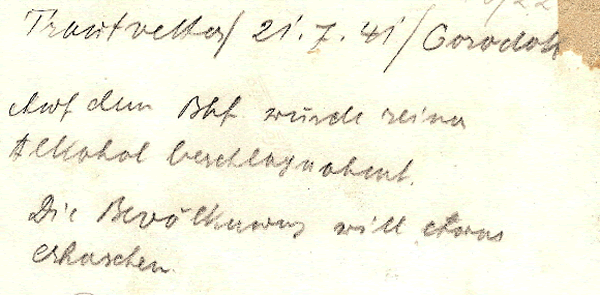 Trautvetter/ 21. 7. 41/ Gorodok
Auf dem Bhf wurde reiner
Alkohol beschlagnahmt.
Die Bevölkerung will etwas
erhaschen.